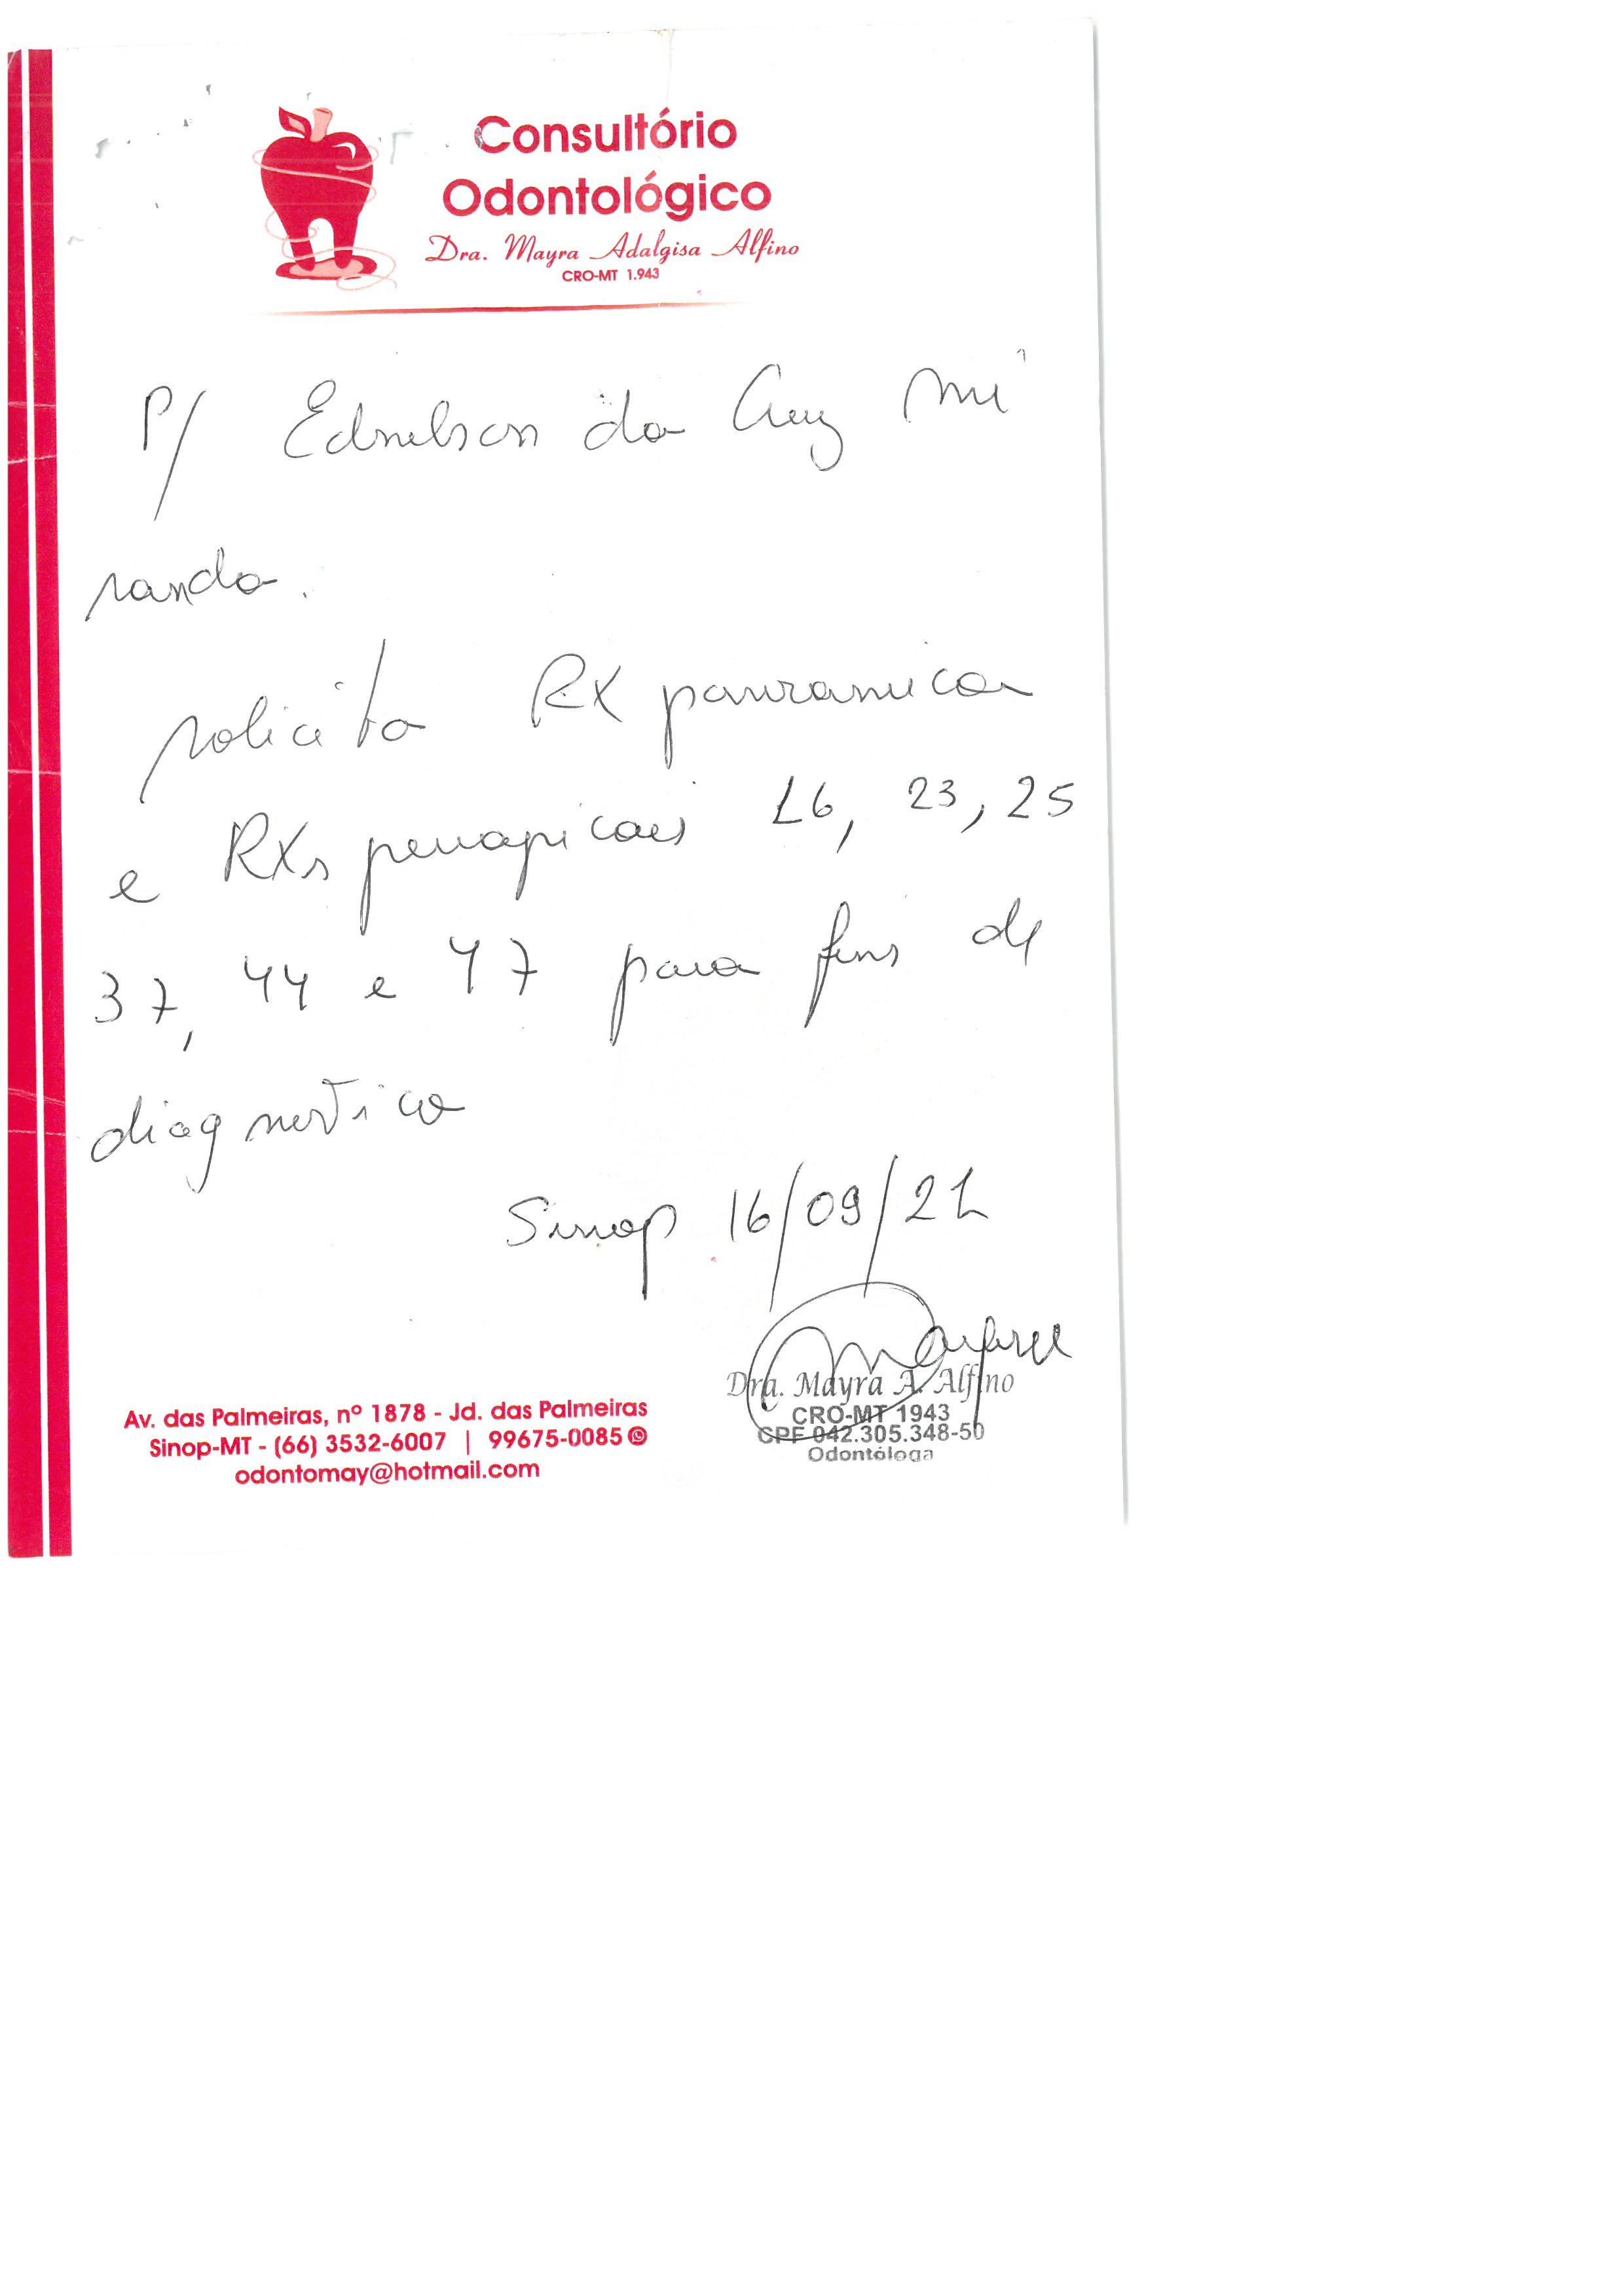 Consultório
Odontológico
Dra. Mayra Adalgisa Alfino
CRO-MT 1.943
P/ Ednelson da Cruz Mi
randa.
solicito RX panoramica
e RXs periapicais 16, 23, 25
37, 44 e 47 para fins de
diagnostico
Sinop 16/09/21
Dra. Mayra A. Alfino
CRO-MT 1943
CPF 042.305.348-50
Odontóloga
Av. das Palmeiras, nº 1878 - Jd. das Palmeiras
Sinop-MT - (66) 3532-6007 | 99675-0085
odontomay@hotmail.com